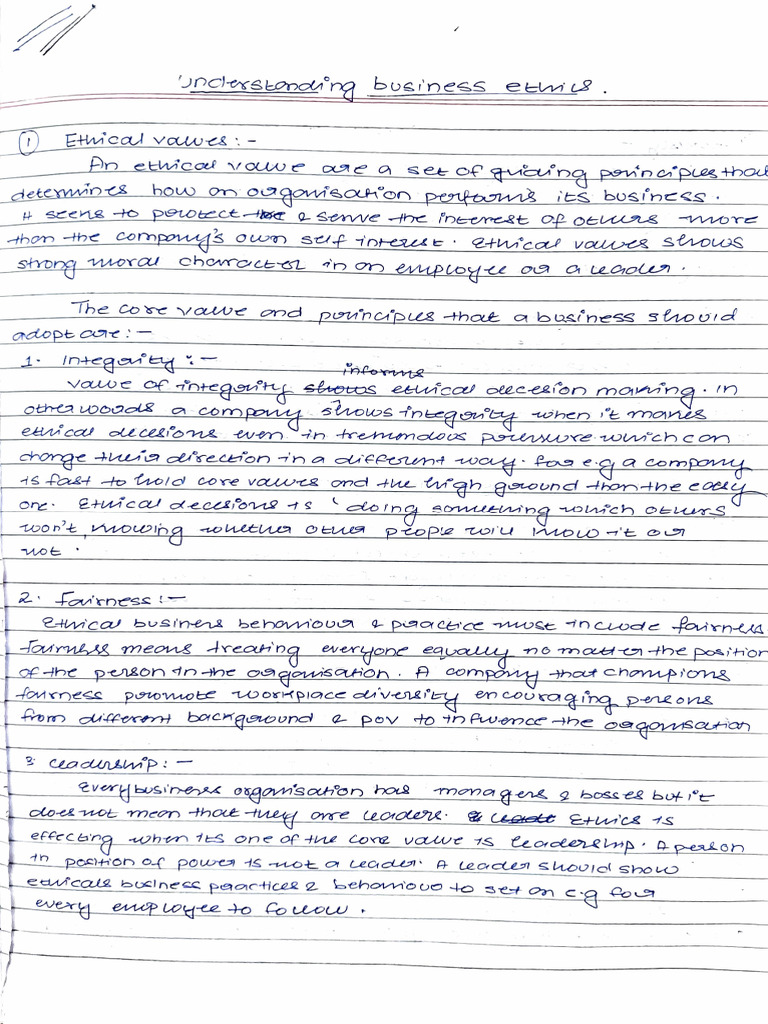 Understanding business ethics.
① Ethical values :-
An ethical value are a set of guiding principles that
determines how an organisation performs its business.
It seens to protect the & serve the interest of others more
than the company's own self interest. Ethical values shows
strong moral character in an employee or a leader.
The core value and principles that a business should
adopt are :-
1. Integrity :-
informs
value of integrity shows ethical decesion making. In
other woods a company shows integrity when it makes
ethical decesions even in tremondous pressure which can
change their direction in a different way. for e.g a company
is fast to hold core values and the high ground than the easy
one. Ethical decesions is 'doing something which others
won't, knowing whether other people will know it or
not.
2. Fairness :-
Ethical business behaviour & practice must include fairness.
fairness means treating everyone equally no matter the position
of the person in the organisation. A company that champions
fairness promote workplace diversity encouraging persons
from different background & pov to influence the organisation
3. Leadership :-
Every business organisation has managers & bosses but it
does not mean that they are leaders. & Leade Ethics is
effecting when its one of the core value is leadership. A person
in position of power is not a leader. A leader should show
ethicals business practices & behaviour to set an e.g for
every employee to follow.